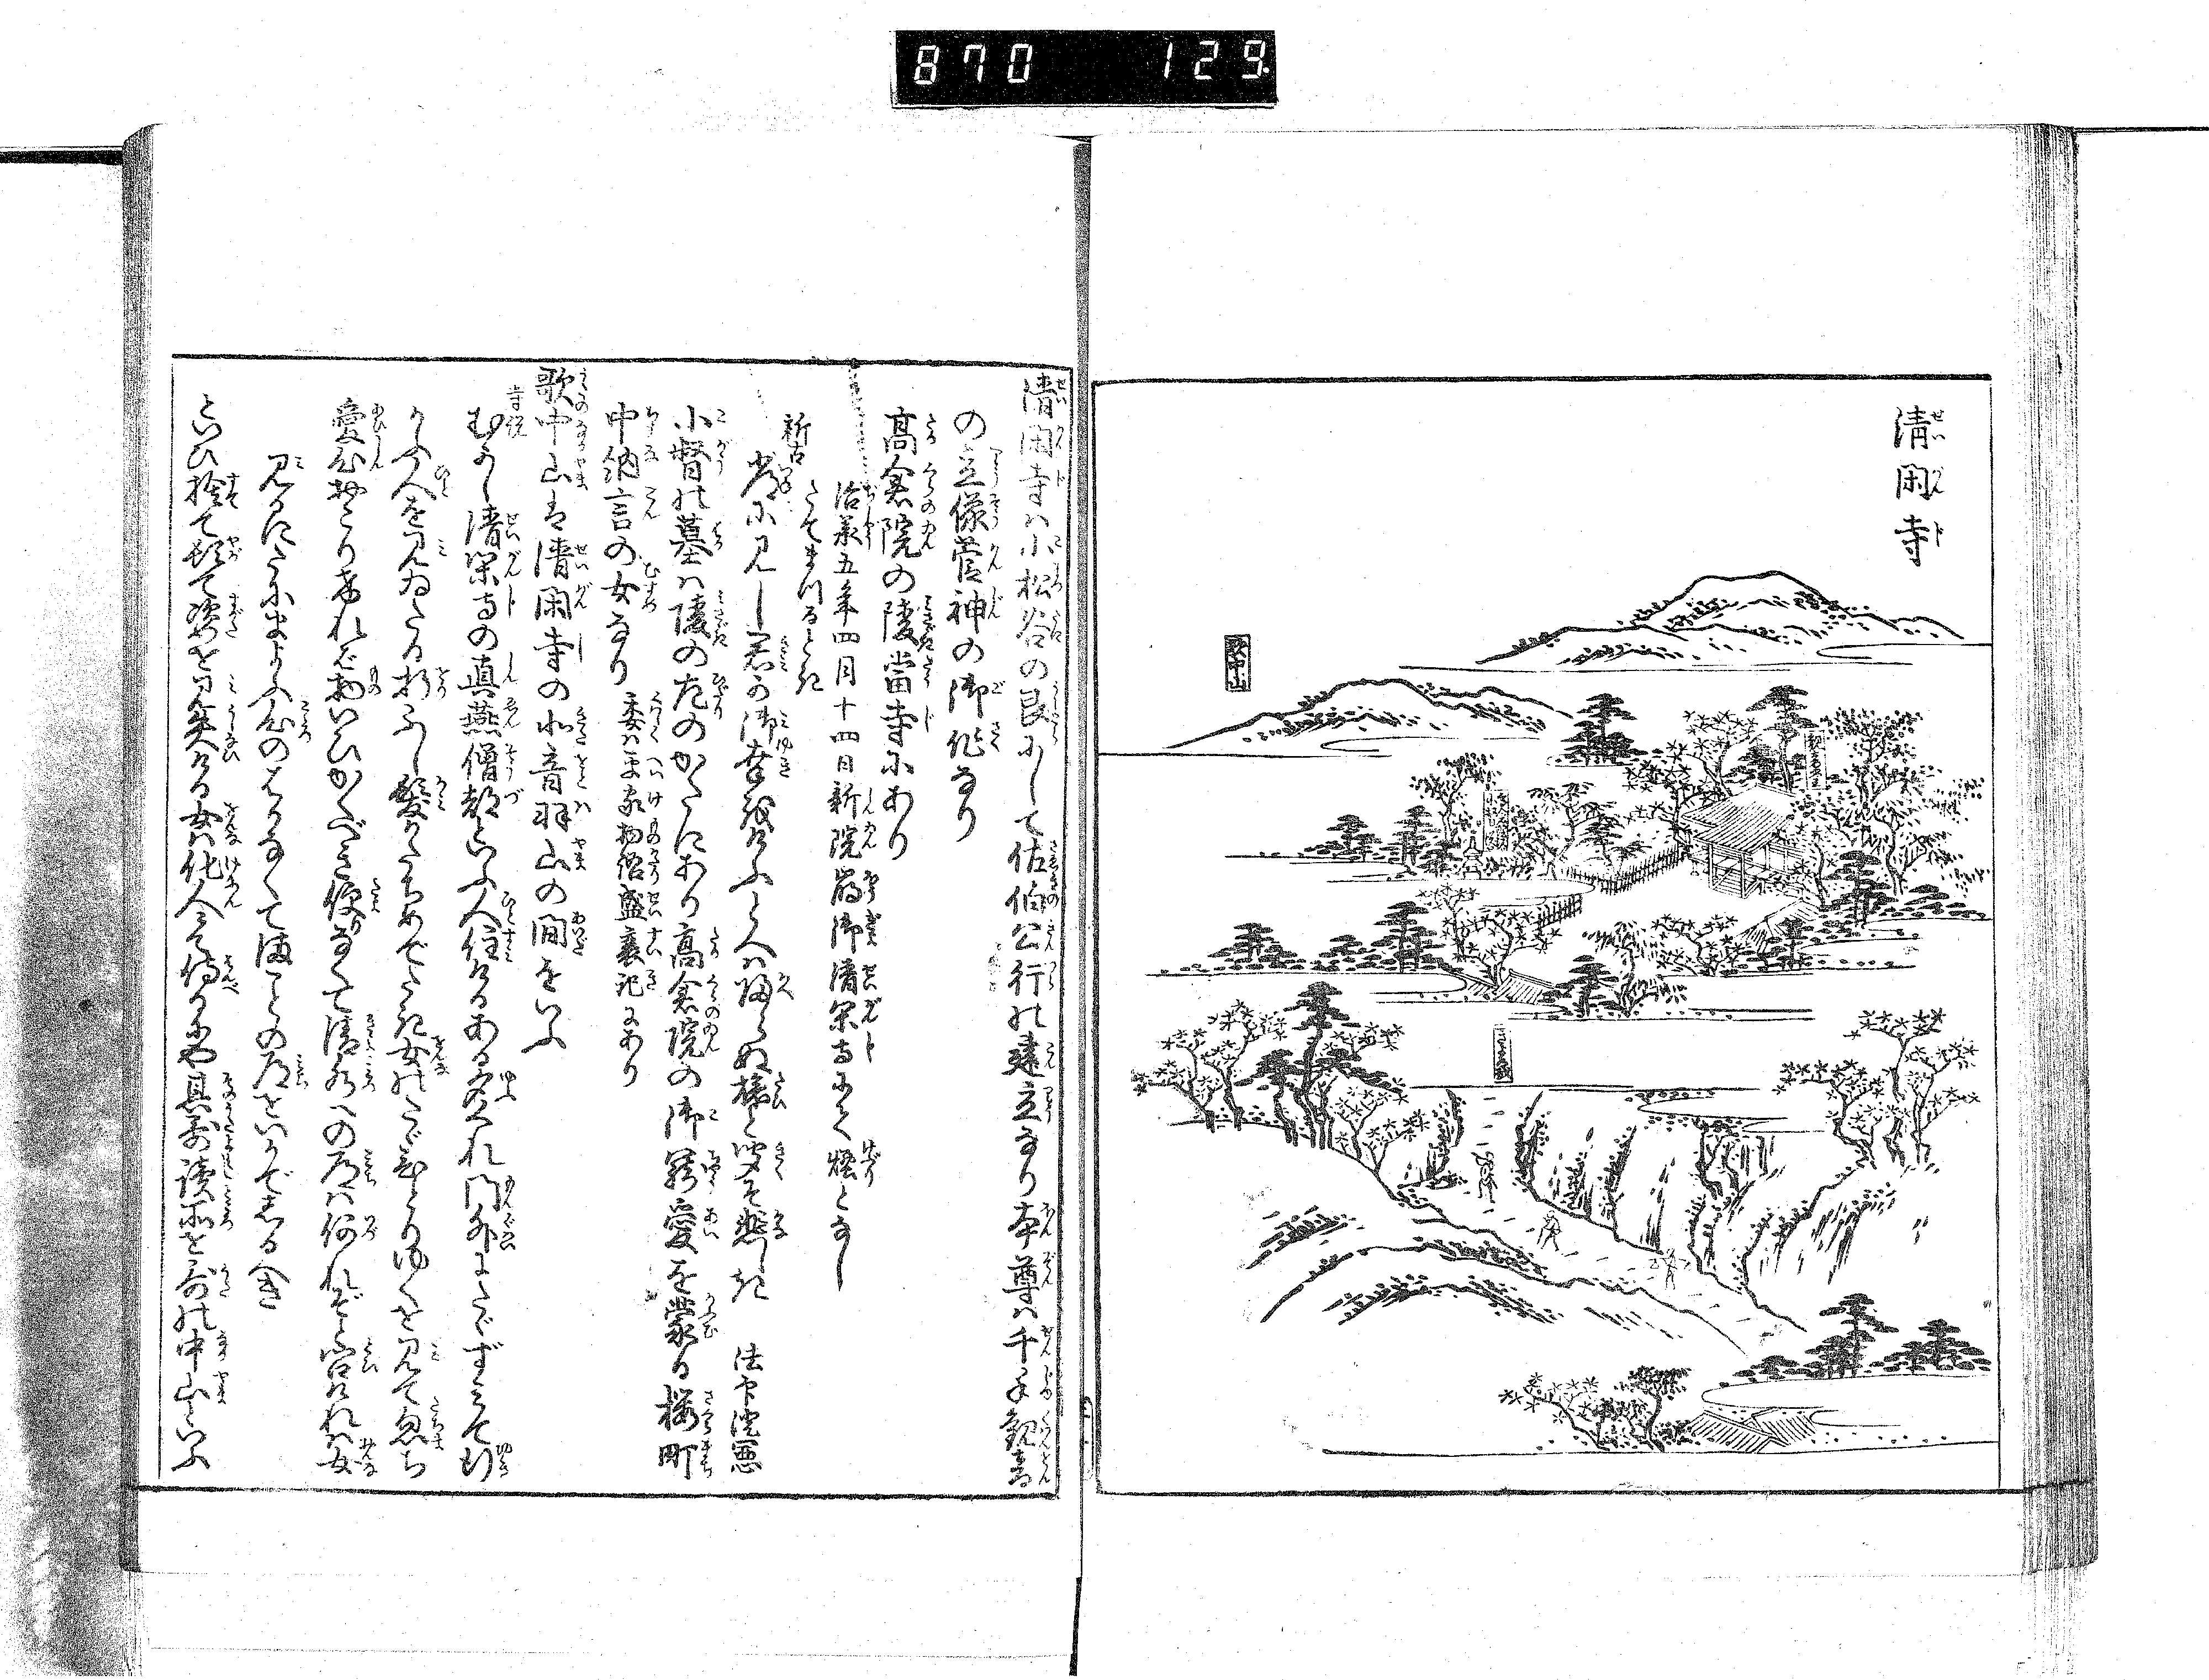 870 129
清閑寺
歌中山
清閑寺ハ小松谷の艮にして佐伯公行の建立なり本尊ハ千手観音
の立像菅神の御作なり
高倉院の陵当寺にあり
治承五年四月十四日新院崩御清閑寺にて
新古
常に見し君か御幸をけふとへハ帰らぬ旅と聞そ悲しき 法印澄憲
小督の墓ハ陵の左のかたにあり高倉院の御寵愛を蒙る桜町
中納言の女なり 委ハ平家物語盛衰記にあり
歌中山は清閑寺の北音羽山の間をいふ
寺説
むかし清閑寺の真燕僧都といふ人住けるある夕くれ門外にたゝずみて行
かふ人を見ゐたる折ふし髪かたちめでたき女のたゞひとりゆくを見て忽ち
愛心おこりけれど物いひかくべき便りなくて清水への道ハ何れぞと問けれハ女
見るにたにまよふ心のはかなくてまことの道をいかでしるべき
といひ捨て頓て姿を見失ひける女ハ化人にて侍るにや其哥読所を哥の中山といふ